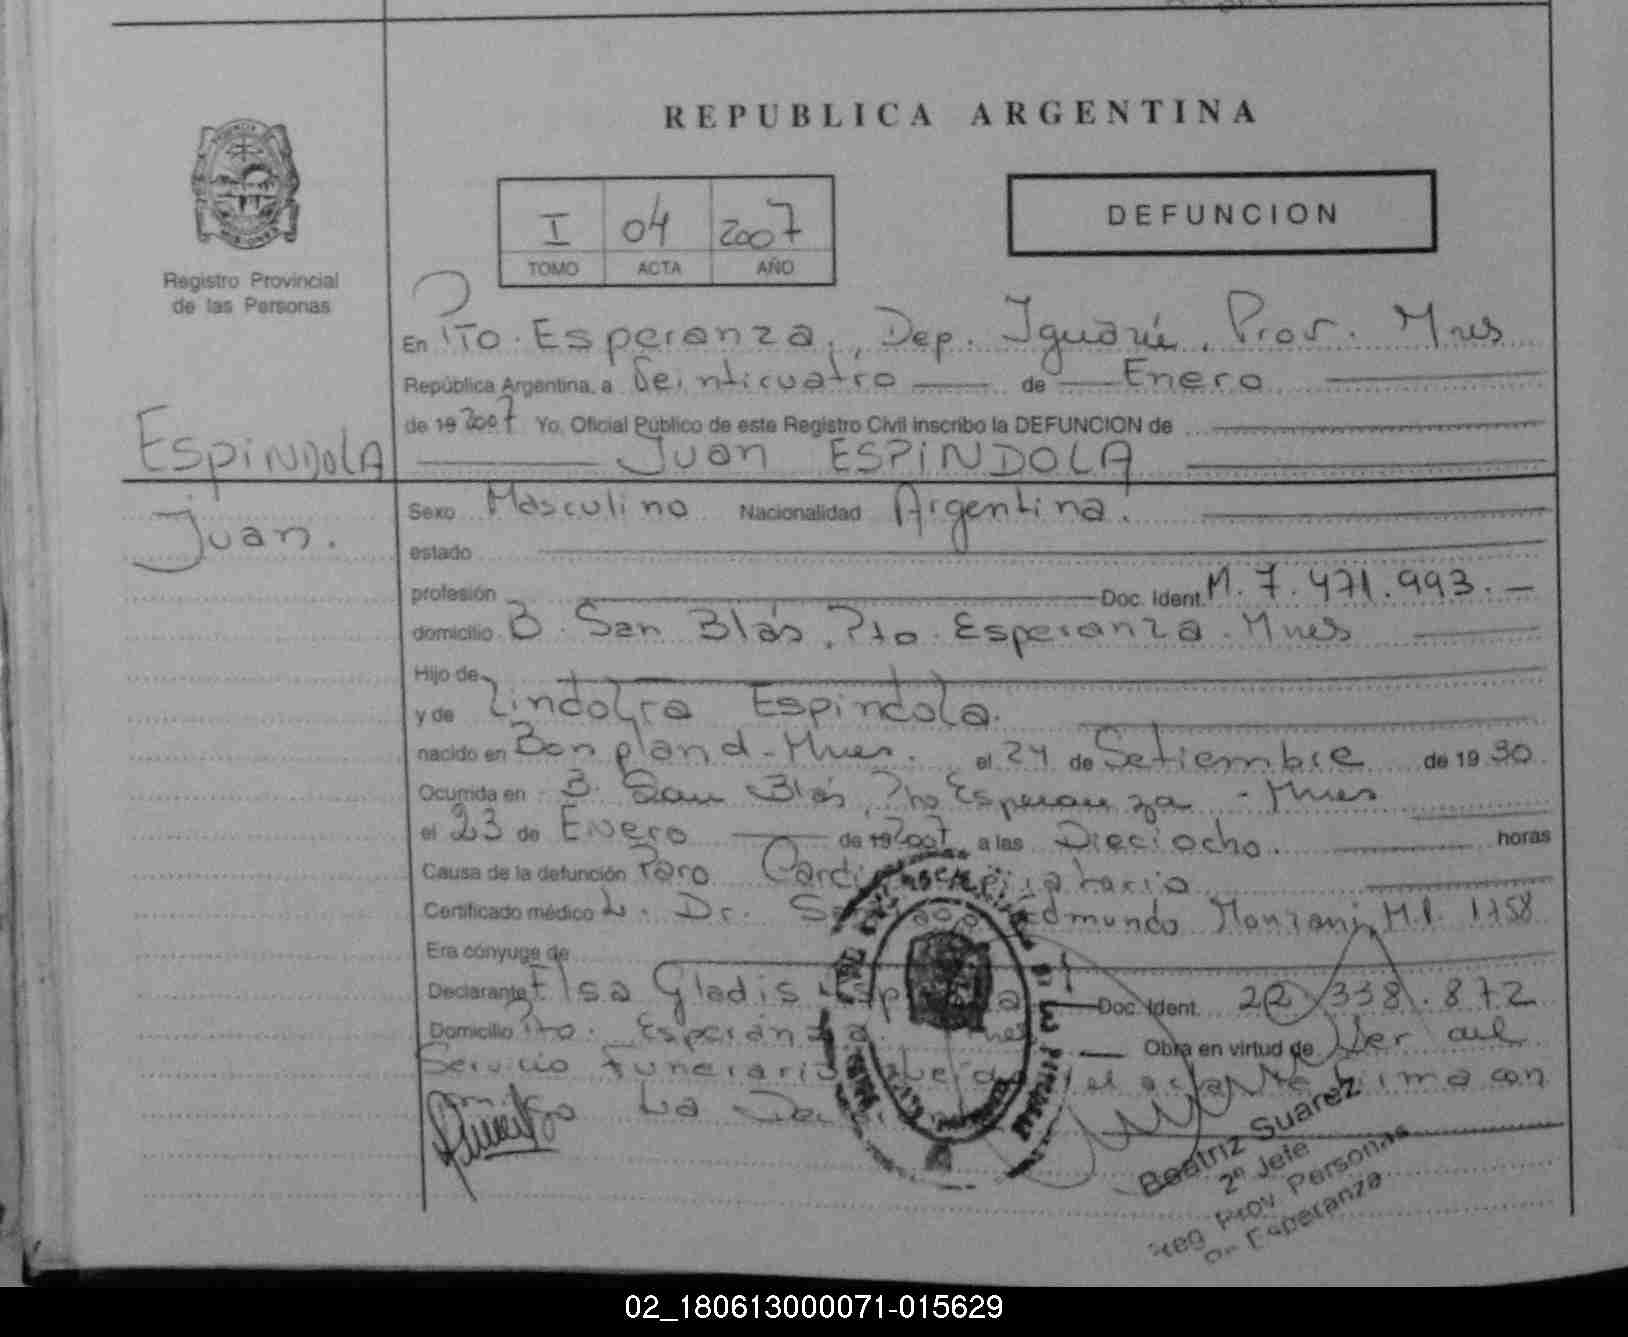 REPUBLICA ARGENTINA
Registro Provincial
de las Personas
I 04 2007
TOMO ACTA AÑO
DEFUNCION
En PTO. Esperanza, Dep. Iguazú, Prov. Mnes
República Argentina, a Veinticuatro de Enero
de 19 2007 Yo, Oficial Público de este Registro Civil inscribo la DEFUNCION de
ESPINDOLA
Juan ESPINDOLA
Juan.
Sexo Masculino Nacionalidad Argentina.
estado
profesión Doc. Ident. M. 7.471.993.-
domicilio B. San Blás, Pto. Esperanza. Mnes
Hijo de
y de Lindolfra Espindola.
nacido en Bonpland - Mnes. el 24 de Setiembre de 19 30
Ocurrida en B. San Blás, Pto Esperanza - Mnes
el 23 de Enero de 19 2007 a las Dieciocho. horas
Causa de la defunción Paro Cardiorespiratorio
Certificado médico L. Dr. Edmundo Manzani, M.P. 1758
Era cónyuge de
Declarante Elsa Gladis Espindola Doc. Ident. 22.338.872
Domicilio Pto. Esperanza Mnes. Obra en virtud de Ser del
Servicio Funerario firma con
migo La
Beatriz Suarez
2º Jefe
Reg Prov Personas
Esperanza
02_180613000071-015629